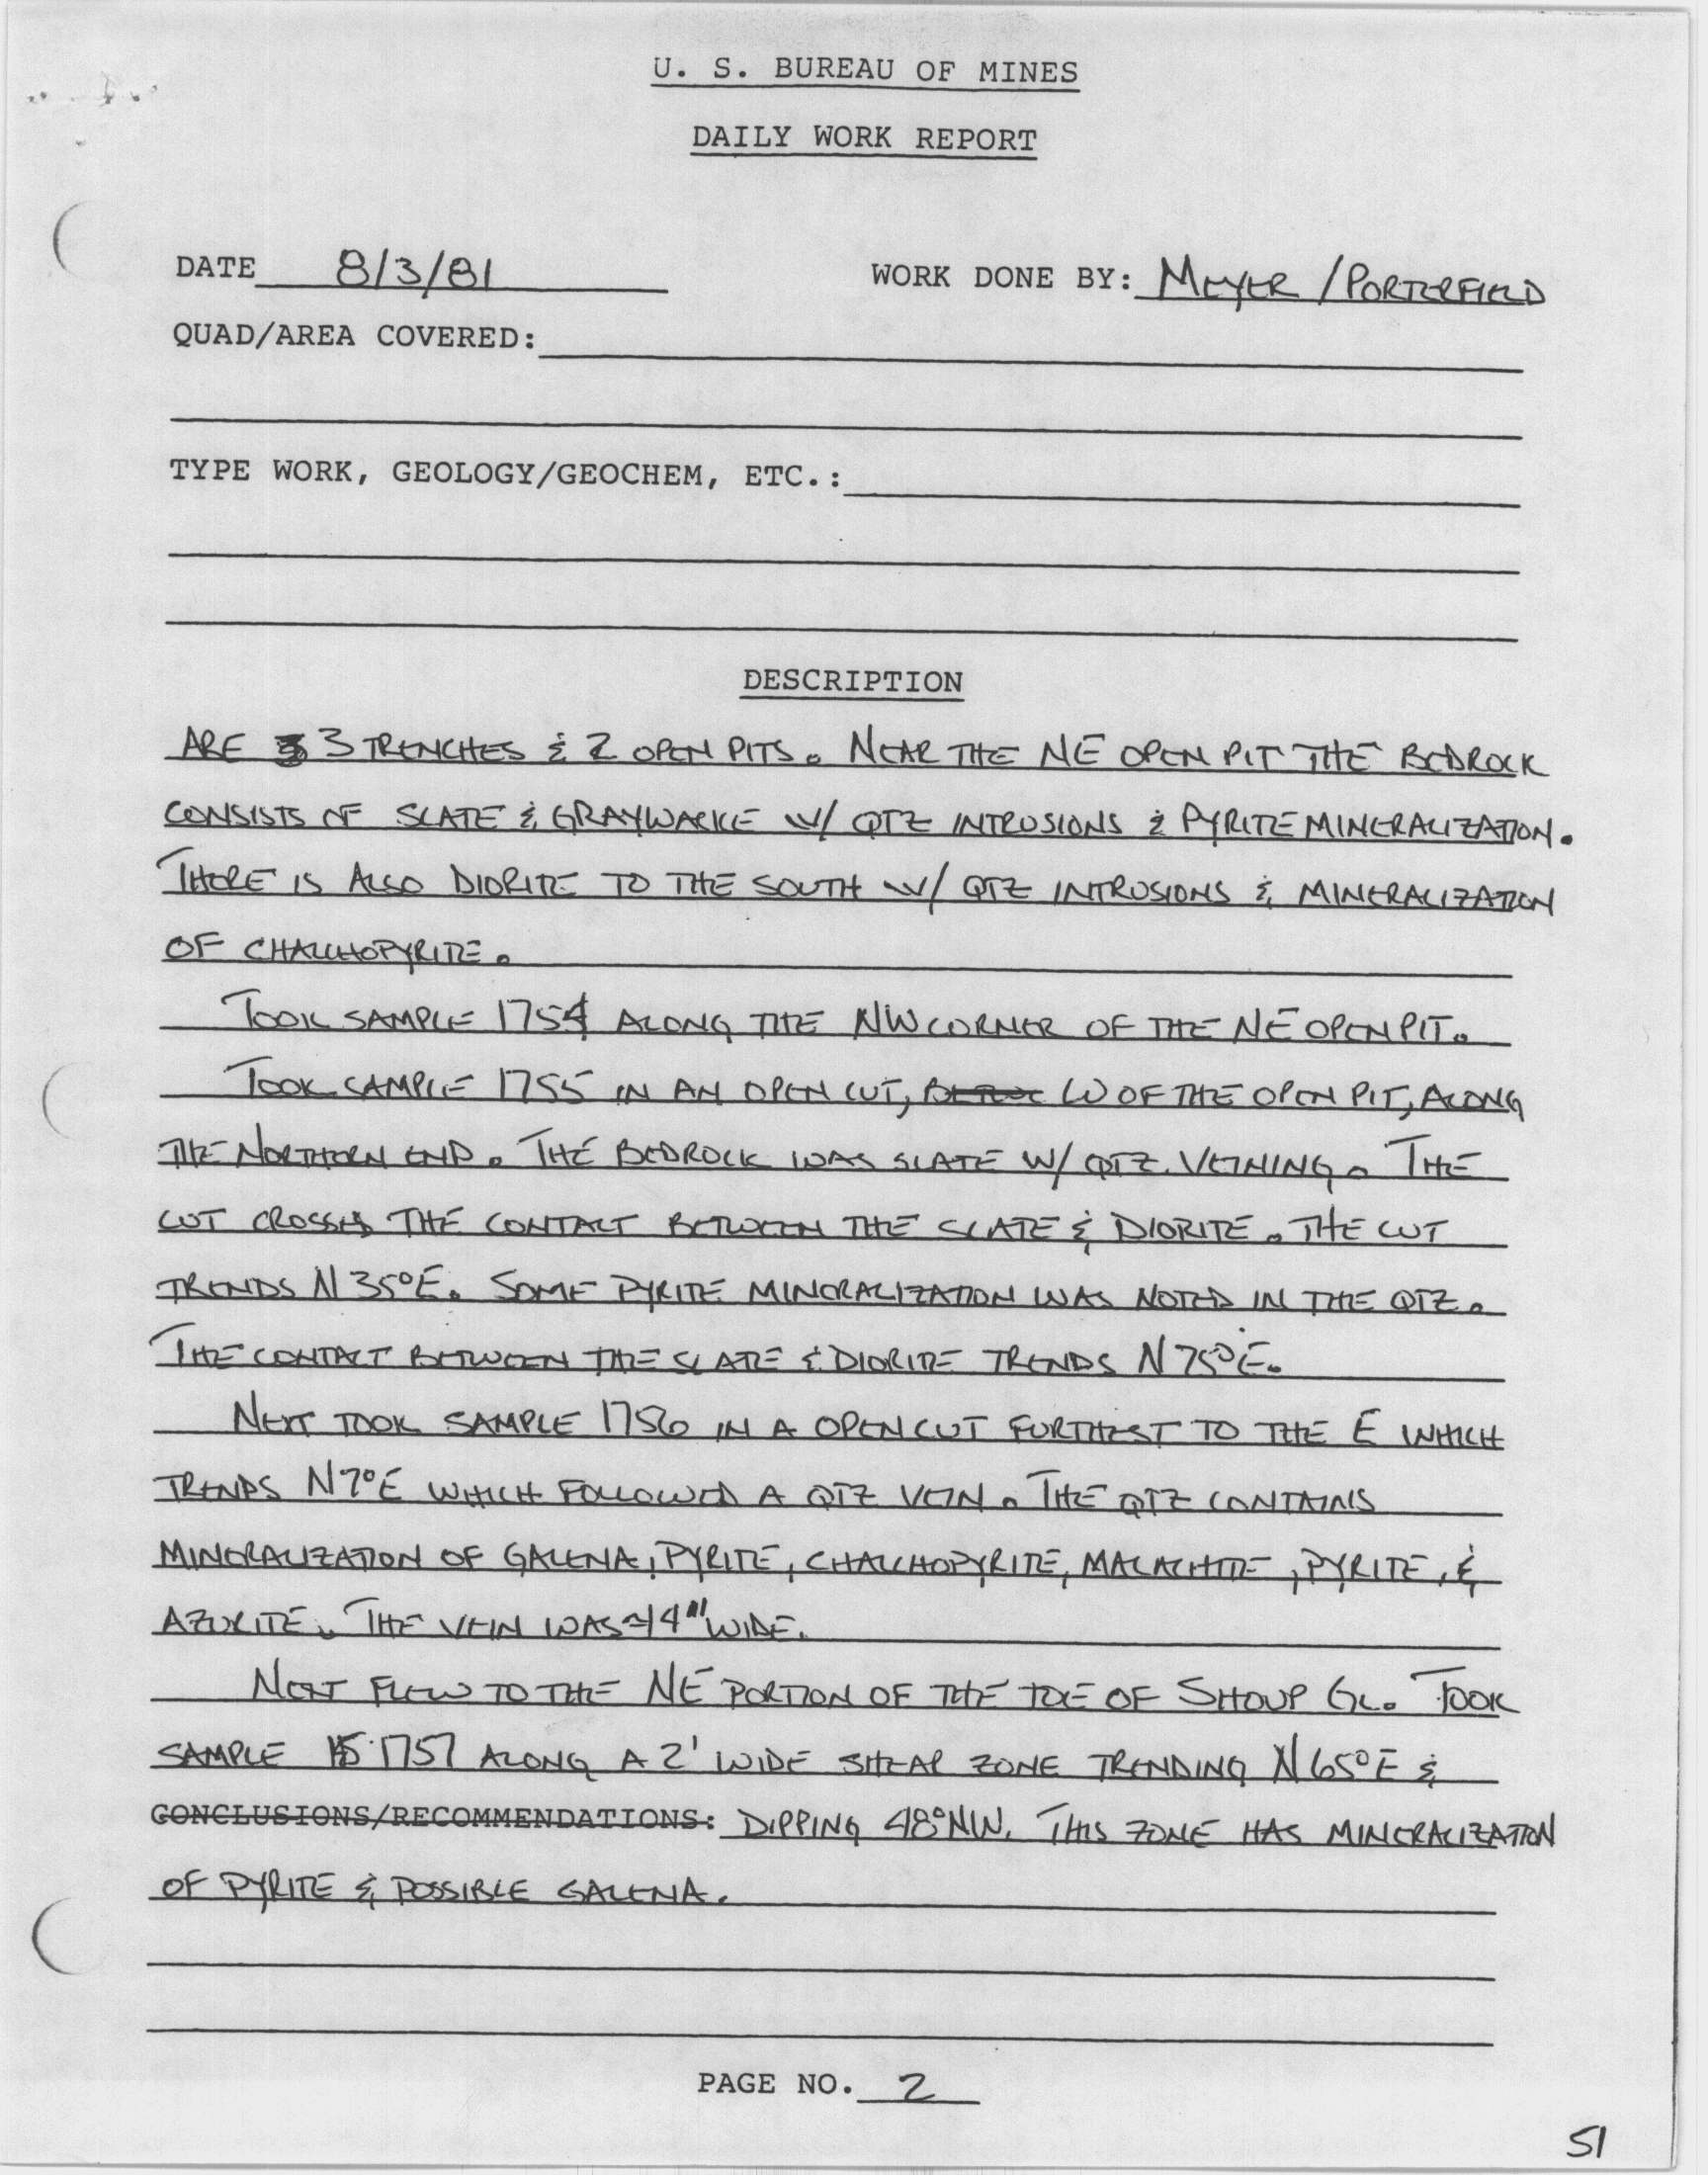 U. S. BUREAU OF MINES
DAILY WORK REPORT
DATE 8/3/81 WORK DONE BY: MEYER / PORTERFIELD
QUAD/AREA COVERED:
TYPE WORK, GEOLOGY/GEOCHEM, ETC.:
DESCRIPTION
ARE 3 TRENCHES & 2 OPEN PITS. NEAR THE NE OPEN PIT THE BEDROCK
CONSISTS OF SLATE & GRAYWACKE W/ QTZ INTRUSIONS & PYRITE MINERALIZATION.
THERE IS ALSO DIORITE TO THE SOUTH W/ QTZ INTRUSIONS & MINERALIZATION
OF CHALCHOPYRITE.
TOOK SAMPLE 1754 ALONG THE NW CORNER OF THE NE OPEN PIT.
TOOK SAMPLE 1755 IN AN OPEN CUT, W OF THE OPEN PIT, ALONG
THE NORTHERN END. THE BEDROCK WAS SLATE W/ QTZ. VEINING. THE
CUT CROSSES THE CONTACT BETWEEN THE SLATE & DIORITE. THE CUT
TRENDS N 35°E. SOME PYRITE MINERALIZATION WAS NOTED IN THE QTZ.
THE CONTACT BETWEEN THE SLATE & DIORITE TRENDS N 75°E.
NEXT TOOK SAMPLE 1756 IN A OPEN CUT FURTHEST TO THE E WHICH
TRENDS N7°E WHICH FOLLOWED A QTZ VEIN. THE QTZ CONTAINS
MINERALIZATION OF GALENA, PYRITE, CHALCHOPYRITE, MALACHITE, PYRITE, &
AZURITE. THE VEIN WAS ~14" WIDE.
NEXT FLEW TO THE NE PORTION OF THE TOE OF SHOUP GL. TOOK
SAMPLE 1757 ALONG A 2' WIDE SHEAR ZONE TRENDING N 65°E &
CONCLUSIONS/RECOMMENDATIONS: DIPPING 48°NW. THIS ZONE HAS MINERALIZATION
OF PYRITE & POSSIBLE GALENA.
PAGE NO. 2
51